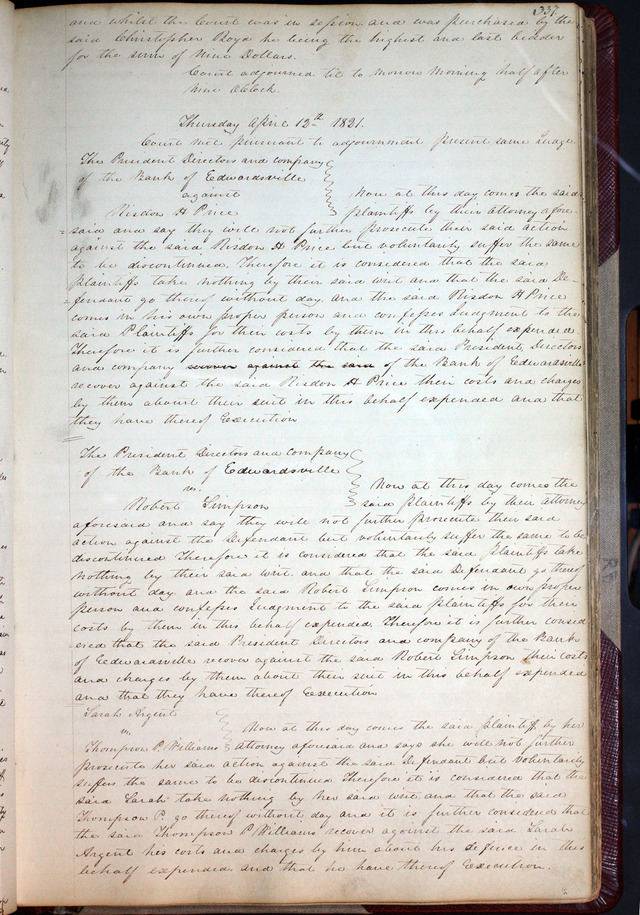 337
and whilst the Court was in session and was purchased by the
said Christopher Boyd he being the highest and last bidder
for the sum of Nine Dollars.
Court adjourned til to morrow morning half after
nine OClock.
Thursday April 12th 1821.
Court met pursuant to adjournment present same Judge
The President Directors and company
of the Bank of Edwardsville
against
Risdon H Price
Now at this day comes the said
plaintiffs by their Attorney afore-
said and say they will not further prosecute their said action
against the said Risdon H Price but voluntarily suffer the same
to be discontinued. Therefore it is considered that the said
plaintiffs take nothing by their said writ and that the said De-
fendant go thereof without day. and the said Risdon H Price
comes in his own proper person and confesses Judgment to the
said Plaintiffs for their costs by them in this behalf expended
Therefore it is further considered that the said President, Directors
and company recover against the said of the Bank of Edwardsville
recover against the said Risdon H Price their costs and charges
by them about their suit in this behalf expended and that
they have thereof Execution
The President Directors and company
of the Bank of Edwardsville
vs.
Robert Simpson
Now at this day comes the
said plaintiffs by their attorney
aforesaid and say they will not further prosecute their said
action against the Defendant but voluntarily suffer the same to be
discontinued Therefore it is considered that the said plaintiffs take
nothing by their said writ and that the said Defendant go thereof
without day and the said Robert Simpson comes in own proper
person and confesses Judgment to the said plaintiffs for their
costs by them in this behalf expended. Therefore it is further consid
ered that the said President Directors and company of the Bank
of Edwardsville recover against the said Robert Simpson their costs
and charges by them about their suit in this behalf expended
and that they have thereof Execution
Sarah Argent
vs.
Thompson P. Williams
Now at this day comes the said plaintiff by her
attorney aforesaid and says she will not further
prosecute her said action against the said Defendant but voluntarily
suffers the same to be discontinued Therefore it is considered that the
said Sarah take nothing by her said writ and that the said
Thompson P. go thereof without day and it is further considered that
the said Thompson P. Williams recover against the said Sarah
Argent his costs and charges by him about his defence in this
behalf expended and that he have thereof Execution.